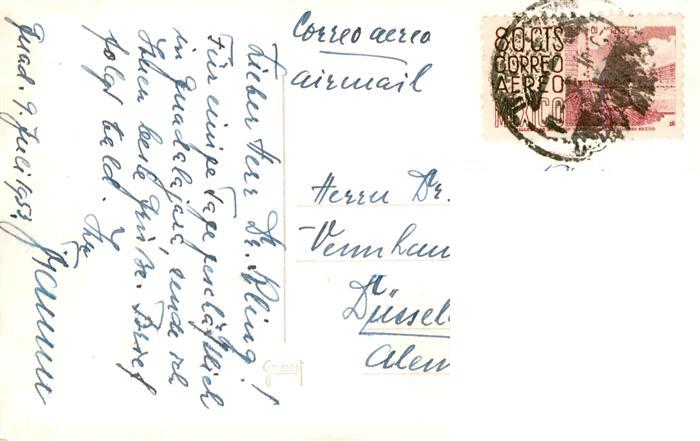 Correo aereo
airmail
80 CTS
CORREO
AEREO
MEXICO
Guad. 9. Juli 1953
Lieber Herr Dr. Kling!
Für einige Tage geschäftlich
in Guadalajara sende ich
Ihnen beste Grüße. Brief
folgt bald. Ihr
Herrn Dr.
Düssel
Alem
Gevaert